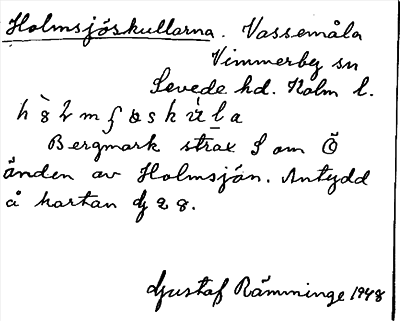 Holmsjöskullarna. Vassemåla
Vimmerby sn
Sevede hd. Kalm l.
Bergmark strax S om Ö
änden av Holmsjön. Antydd
å kartan dj 28.
Gustaf Rämminge 1948